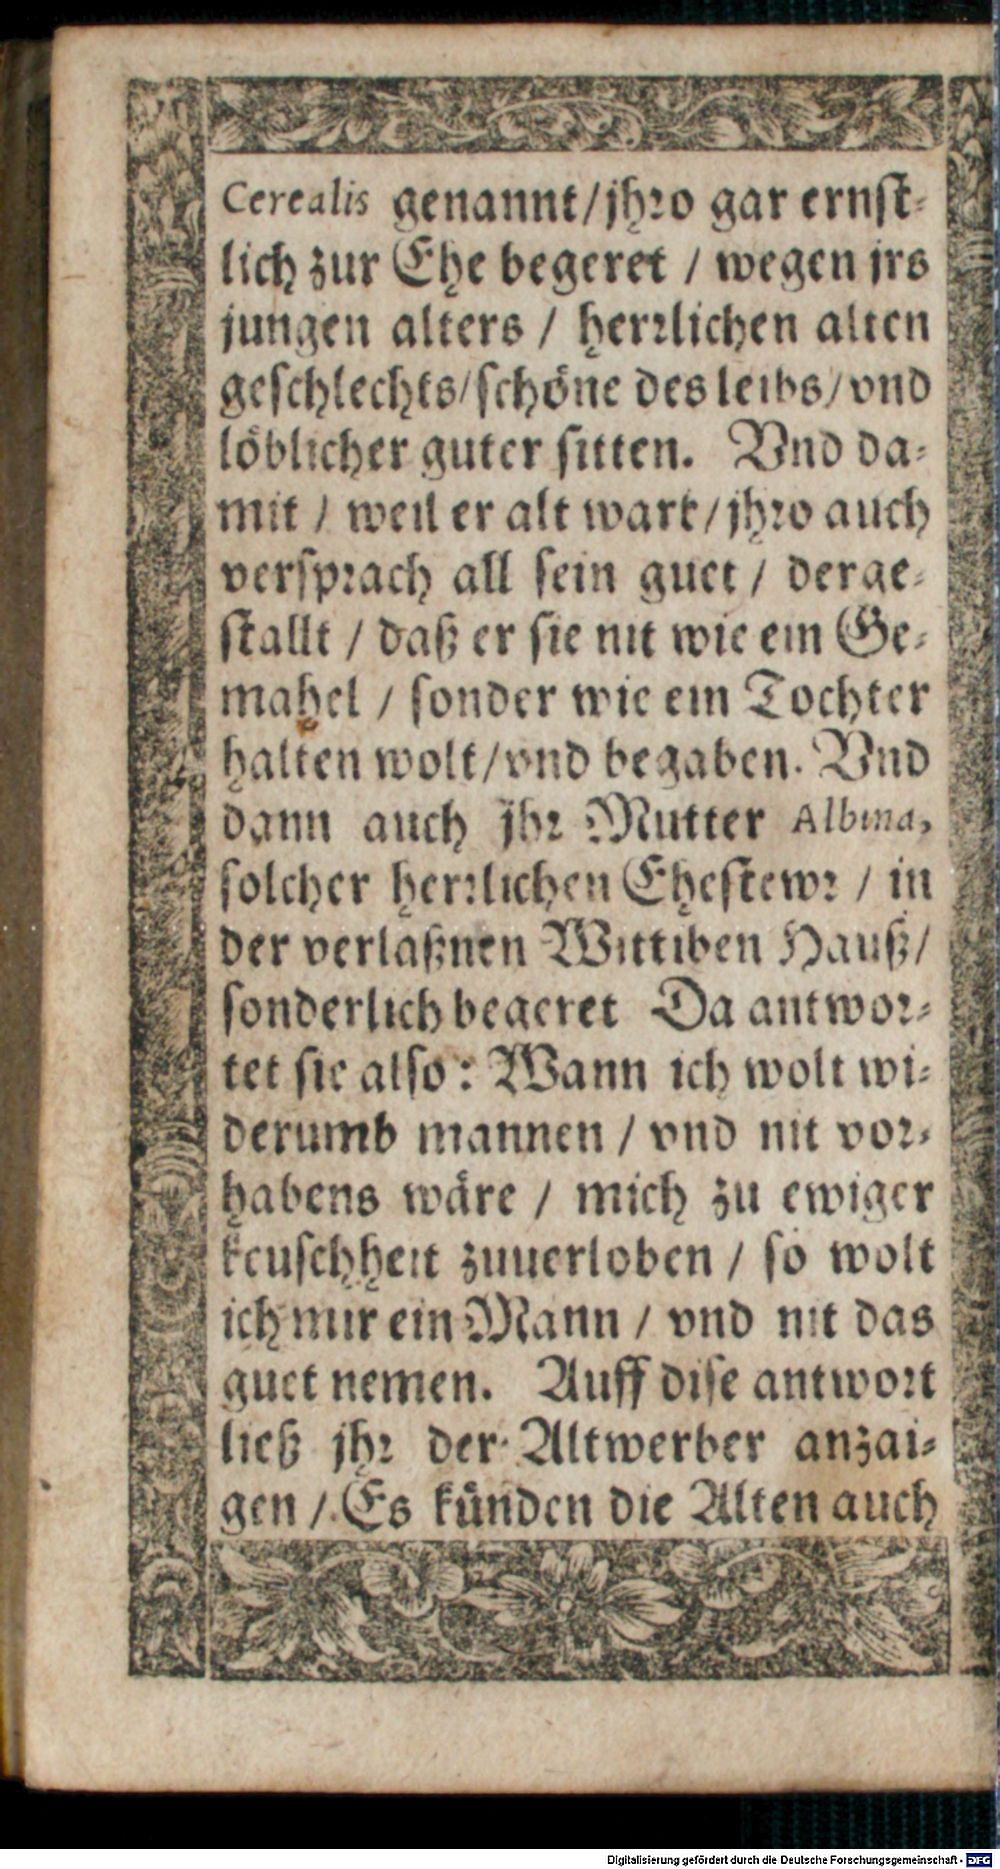 Cerealis genannt/jhro gar ernst-
lich zur Ehe begeret / wegen jrs
jungen alters / herrlichen alten
geschlechts/schöne des leibs/vnd
löblicher guter sitten. Vnd da-
mit / weil er alt wart/jhro auch
versprach all sein guet / derge-
stallt / daß er sie nit wie ein Ge-
mahel / sonder wie ein Tochter
halten wolt/vnd begaben. Vnd
dann auch jhr Mutter Albina,
solcher herrlichen Ehestewr / in
der verlaßnen Wittiben Hauß/
sonderlich begeret Da antwor-
tet sie also: Wann ich wolt wi-
derumb mannen / vnd nit vor-
habens wäre / mich zu ewiger
keuschheit zuuerloben / so wolt
ich mir ein Mann / vnd nit das
guet nemen. Auff dise antwort
ließ jhr der Altwerber anzai-
gen / Es künden die Alten auch
Digitalisierung gefördert durch die Deutsche Forschungsgemeinschaft - DFG